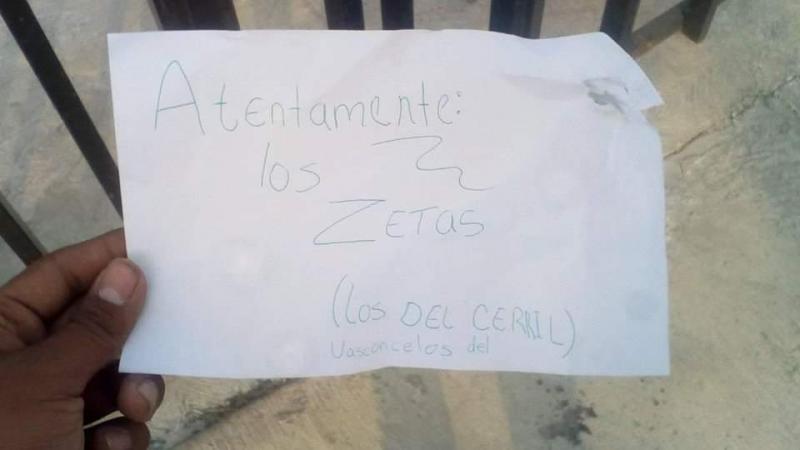 Atentamente:
los
ZETAS
(LOS DEL CERRIL)
Vasconcelos del